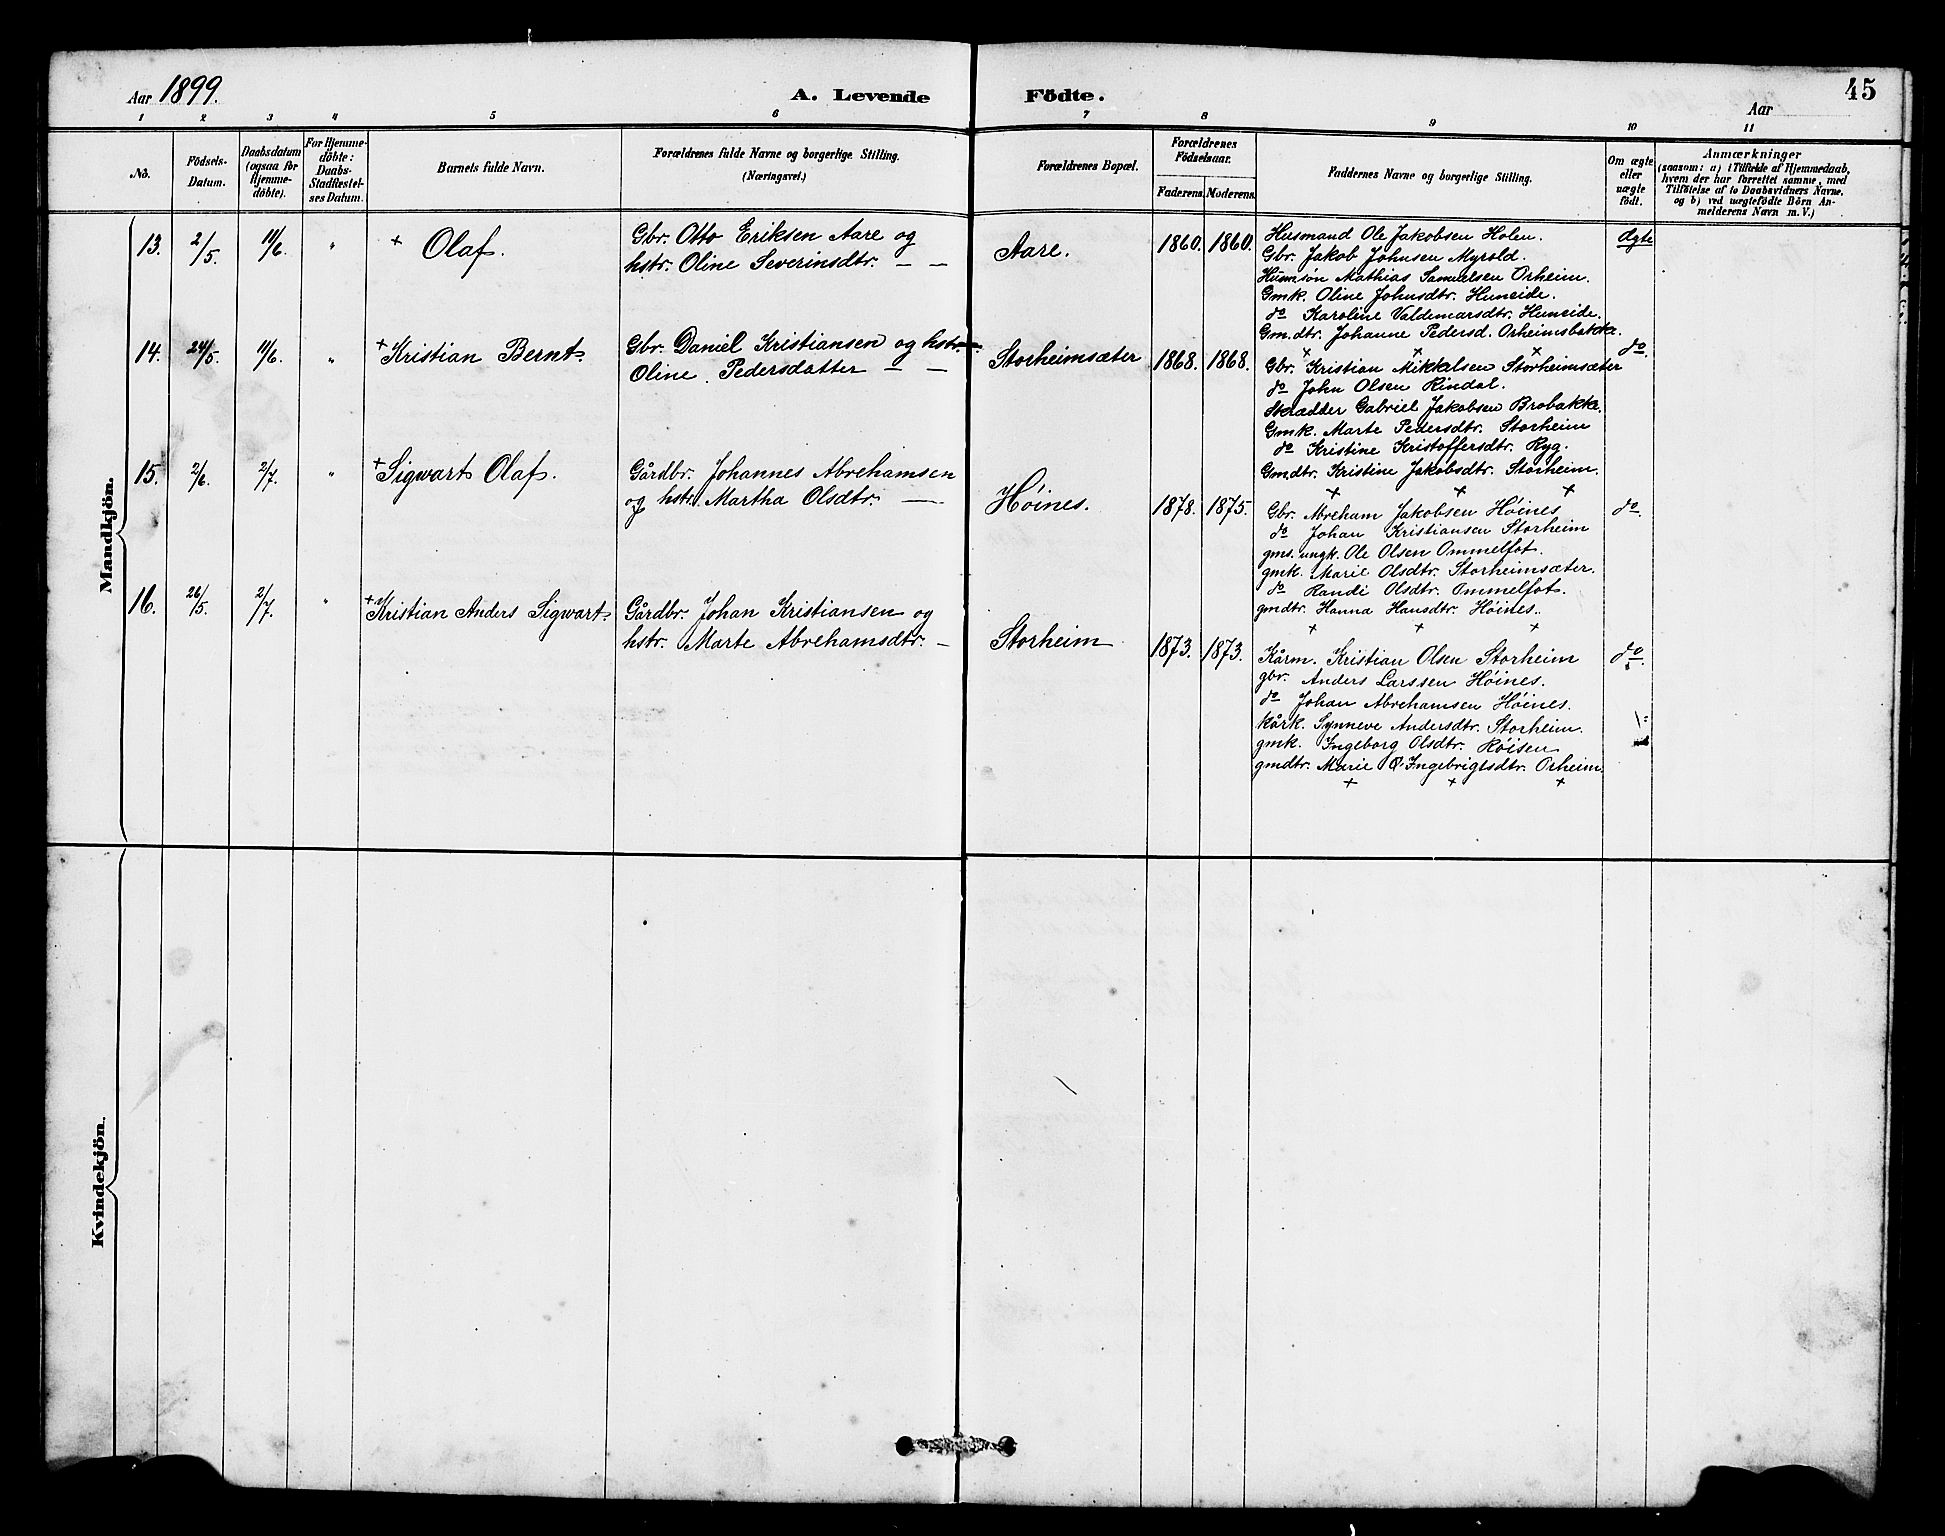 Aar 1899.
A. Levende Födte.
Aar
45
1 2 3 4 5 6 7 8 9 10 11
No.
Födsels-Datum.
Daabsdatum (ogsaa for Hjemme-döbte).
For Hjemme-döbte: Daabs-Stadfæstel-ses Datum.
Barnets fulde Navn.
Forældrenes fulde Navne og borgerlige Stilling.
(Næringsvei.)
Forældrenes Bopæl.
Forældrenes Födselsaar.
Faderens. Moderens.
Faddernes Navne og borgerlige Stilling.
Om ægte eller uægte födt.
Anmærkninger
(saasom: a) i Tilfælde af Hjemmedaab,
hvem der har forrettet samme, med
Tilföielse af to Daabsvidners Navne,
og b) ved uægtefödte Börn An-
melderens Navn m. V.)
Mandkjön.
13. 2/5. 11/6. " + Olaf.
Gbr. Otto Eriksen Aare og
hstr. Oline Severinsdtr. — —
Aare. 1860. 1860.
Husmand Ole Jakobsen Holen.
Gbr. Jakob Johnsen Myrold.
Husmsøn Mathias Samuelsen Orheim.
Gmk. Oline Johnsdtr. Huneide.
do Karoline Valdemarsdtr. Huneide.
Gm.dtr. Johanne Pedersd. Orheimsbakke.
+ + +
ægte
14. 24/5. 11/6. " + Kristian Bernt.
Gbr. Daniel Kristiansen og hstr.
Oline Pedersdatter — —
Storheimsæter 1868. 1868.
Gbr. Kristian Mikkelsen Storheimsæter
do John Olsen Rindal.
Skrædder Gabriel Jakobsen Brobakke.
Gmk. Marte Pedersdtr. Storheim
do Kristine Kristoffersdtr. Ryg.
Gmdtr. Kristine Jakobsdtr. Storheim.
+ + +
do.
15. 2/6. 2/7. " + Sigwart Olaf.
Gårdbr. Johannes Abrehamsen
og hstr. Martha Olsdtr. —
Höines. 1878. 1875.
Gbr. Abreham Jakobsen Höines
do Johan Kristiansen Storheim
gms. ungk. Ole Olsen Ommelfot.
gmk. Marie Olsdtr. Storheimsæter.
do Randi Olsdtr. Ommelfot.
gmdtr. Hanna Hansdtr. Höines.
+ + +
do.
16. 26/5. 2/7. " + Kristian Anders Sigwart.
Gårdbr. Johan Kristiansen og
hstr. Marte Abrehamsdtr. —
Storheim 1873. 1873.
Kårm. Kristian Olsen Storheim
gbr. Anders Larssen Höines.
do Johan Abrehamsen Höines.
kårk. Synneve Andersdtr. Storheim.
gmk. Ingeborg Olsdtr. Röisen
gmdtr. Marie Ingebrigtsdtr. Orheim.
+ + +
do.
Kvindekjön.